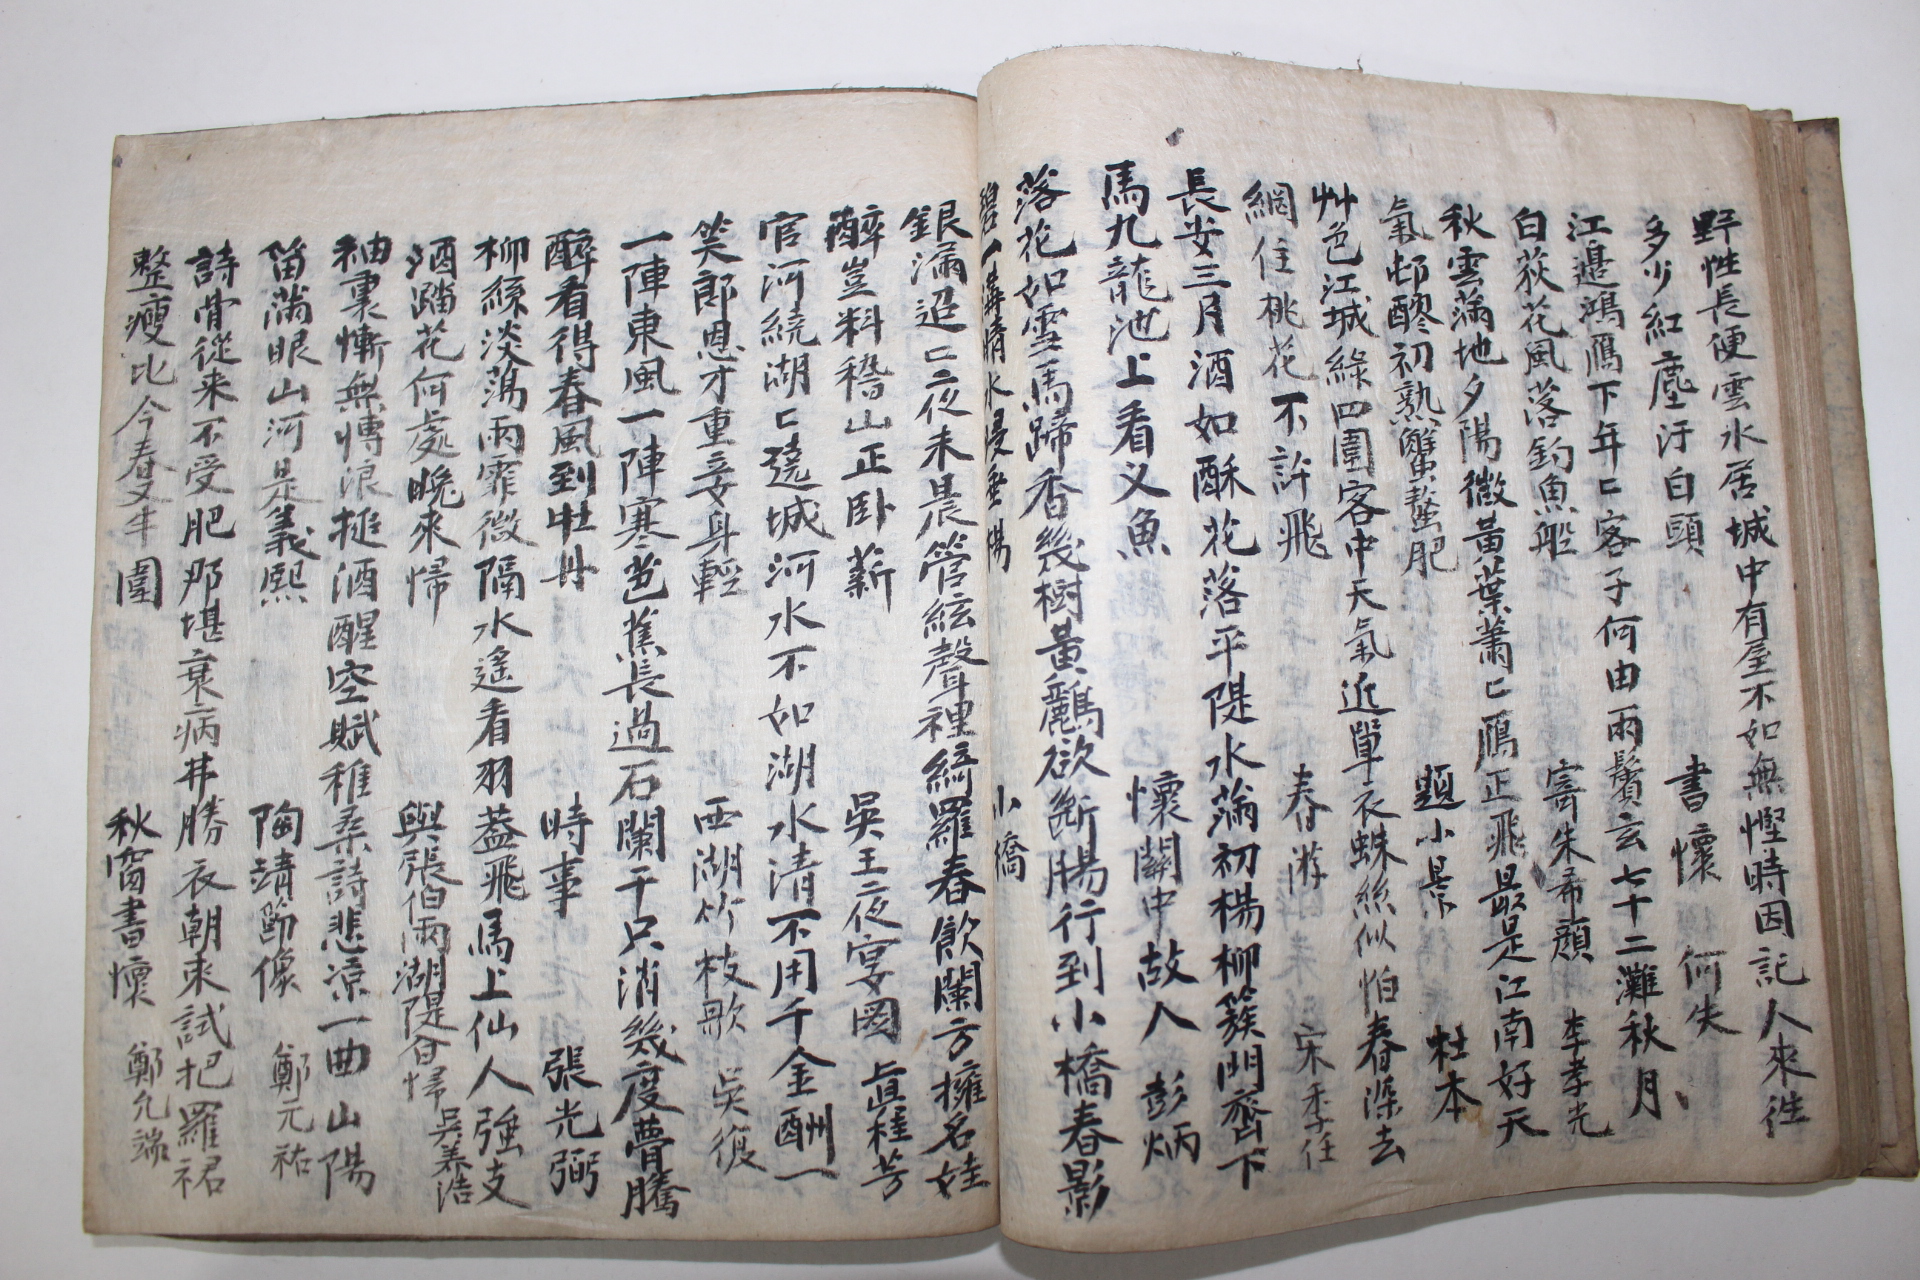 野性長便雲水居城中有屋不如無慳時因記人來往
多少紅塵汙白頭 書懷 何失
江邊鴻鴈下年匕客子何由兩鬢玄七十二灘秋月
白荻花風落釣魚船 寄朱希顔 李孝光
秋雲滿地夕陽微黃葉蕭匕鴈正飛最是江南好天
氣邨醪初熟蟹螯肥 題小景 杜本
艸色江城綠四圍客中天氣近單衣蛛絲似怕春深去
網住桃花不許飛 春游 宋季任
長安三月酒如酥花落平隄水滿初楊柳簇門齊下
馬九龍池上看叉魚 懷關中故人 彭炳
落花如雪馬蹄香幾樹黃鸝欲斷腸行到小橋春影
碧一溝晴水浸垂楊 小橋
銀漏迢匕二夜未晨管絃聲裡綺羅春飮闌方擁名娃
醉豈料稽山正卧薪 吳王二夜宴圖 眞桂芳
官河繞湖匕遶城河水不如湖水清不用千金酬一
笑郎恩才重妾身輕 西湖竹枝歌 吳復
一陣東風一陣寒芭蕉長過石闌干只消幾度瞢騰
醉看得春風到牡丹 時事 張光弼
柳絲淡蕩雨霏微隔水遙看羽蓋飛馬上仙人強支
酒踏花何處晩來帰 與張伯雨湖隄合帰 吳養浩
袖裏慚無博浪搥酒醒空賦稚桑詩悲凉一曲山陽
笛滿眼山河是義熙 陶靖節像 鄭元祐
詩骨從来不受肥那堪衰病幷勝衣朝来試把羅裙
整瘦比今春又半圍 秋窗書懷 鄭允端